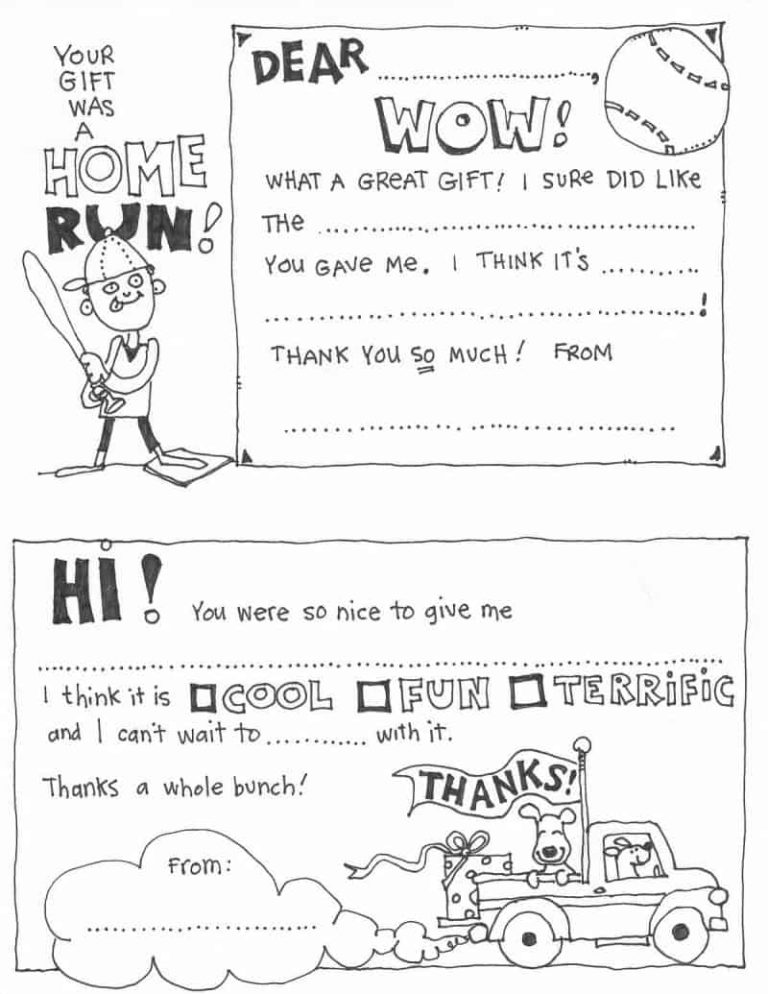 YOUR
GIFT
WAS
A
HOME
RUN!
DEAR ....................,
WOW!
WHAT A GREAT GIFT! I SURE DID LIKE
THE ........................................
YOU GAVE ME. I THINK IT'S ..........
........................................!
THANK YOU SO MUCH! FROM
........................................
HI!
You were so nice to give me
........................................
I think it is COOL FUN TERRiFiC
and I can't wait to ............ with it.
Thanks a whole bunch!
THANKS!
From:
........................